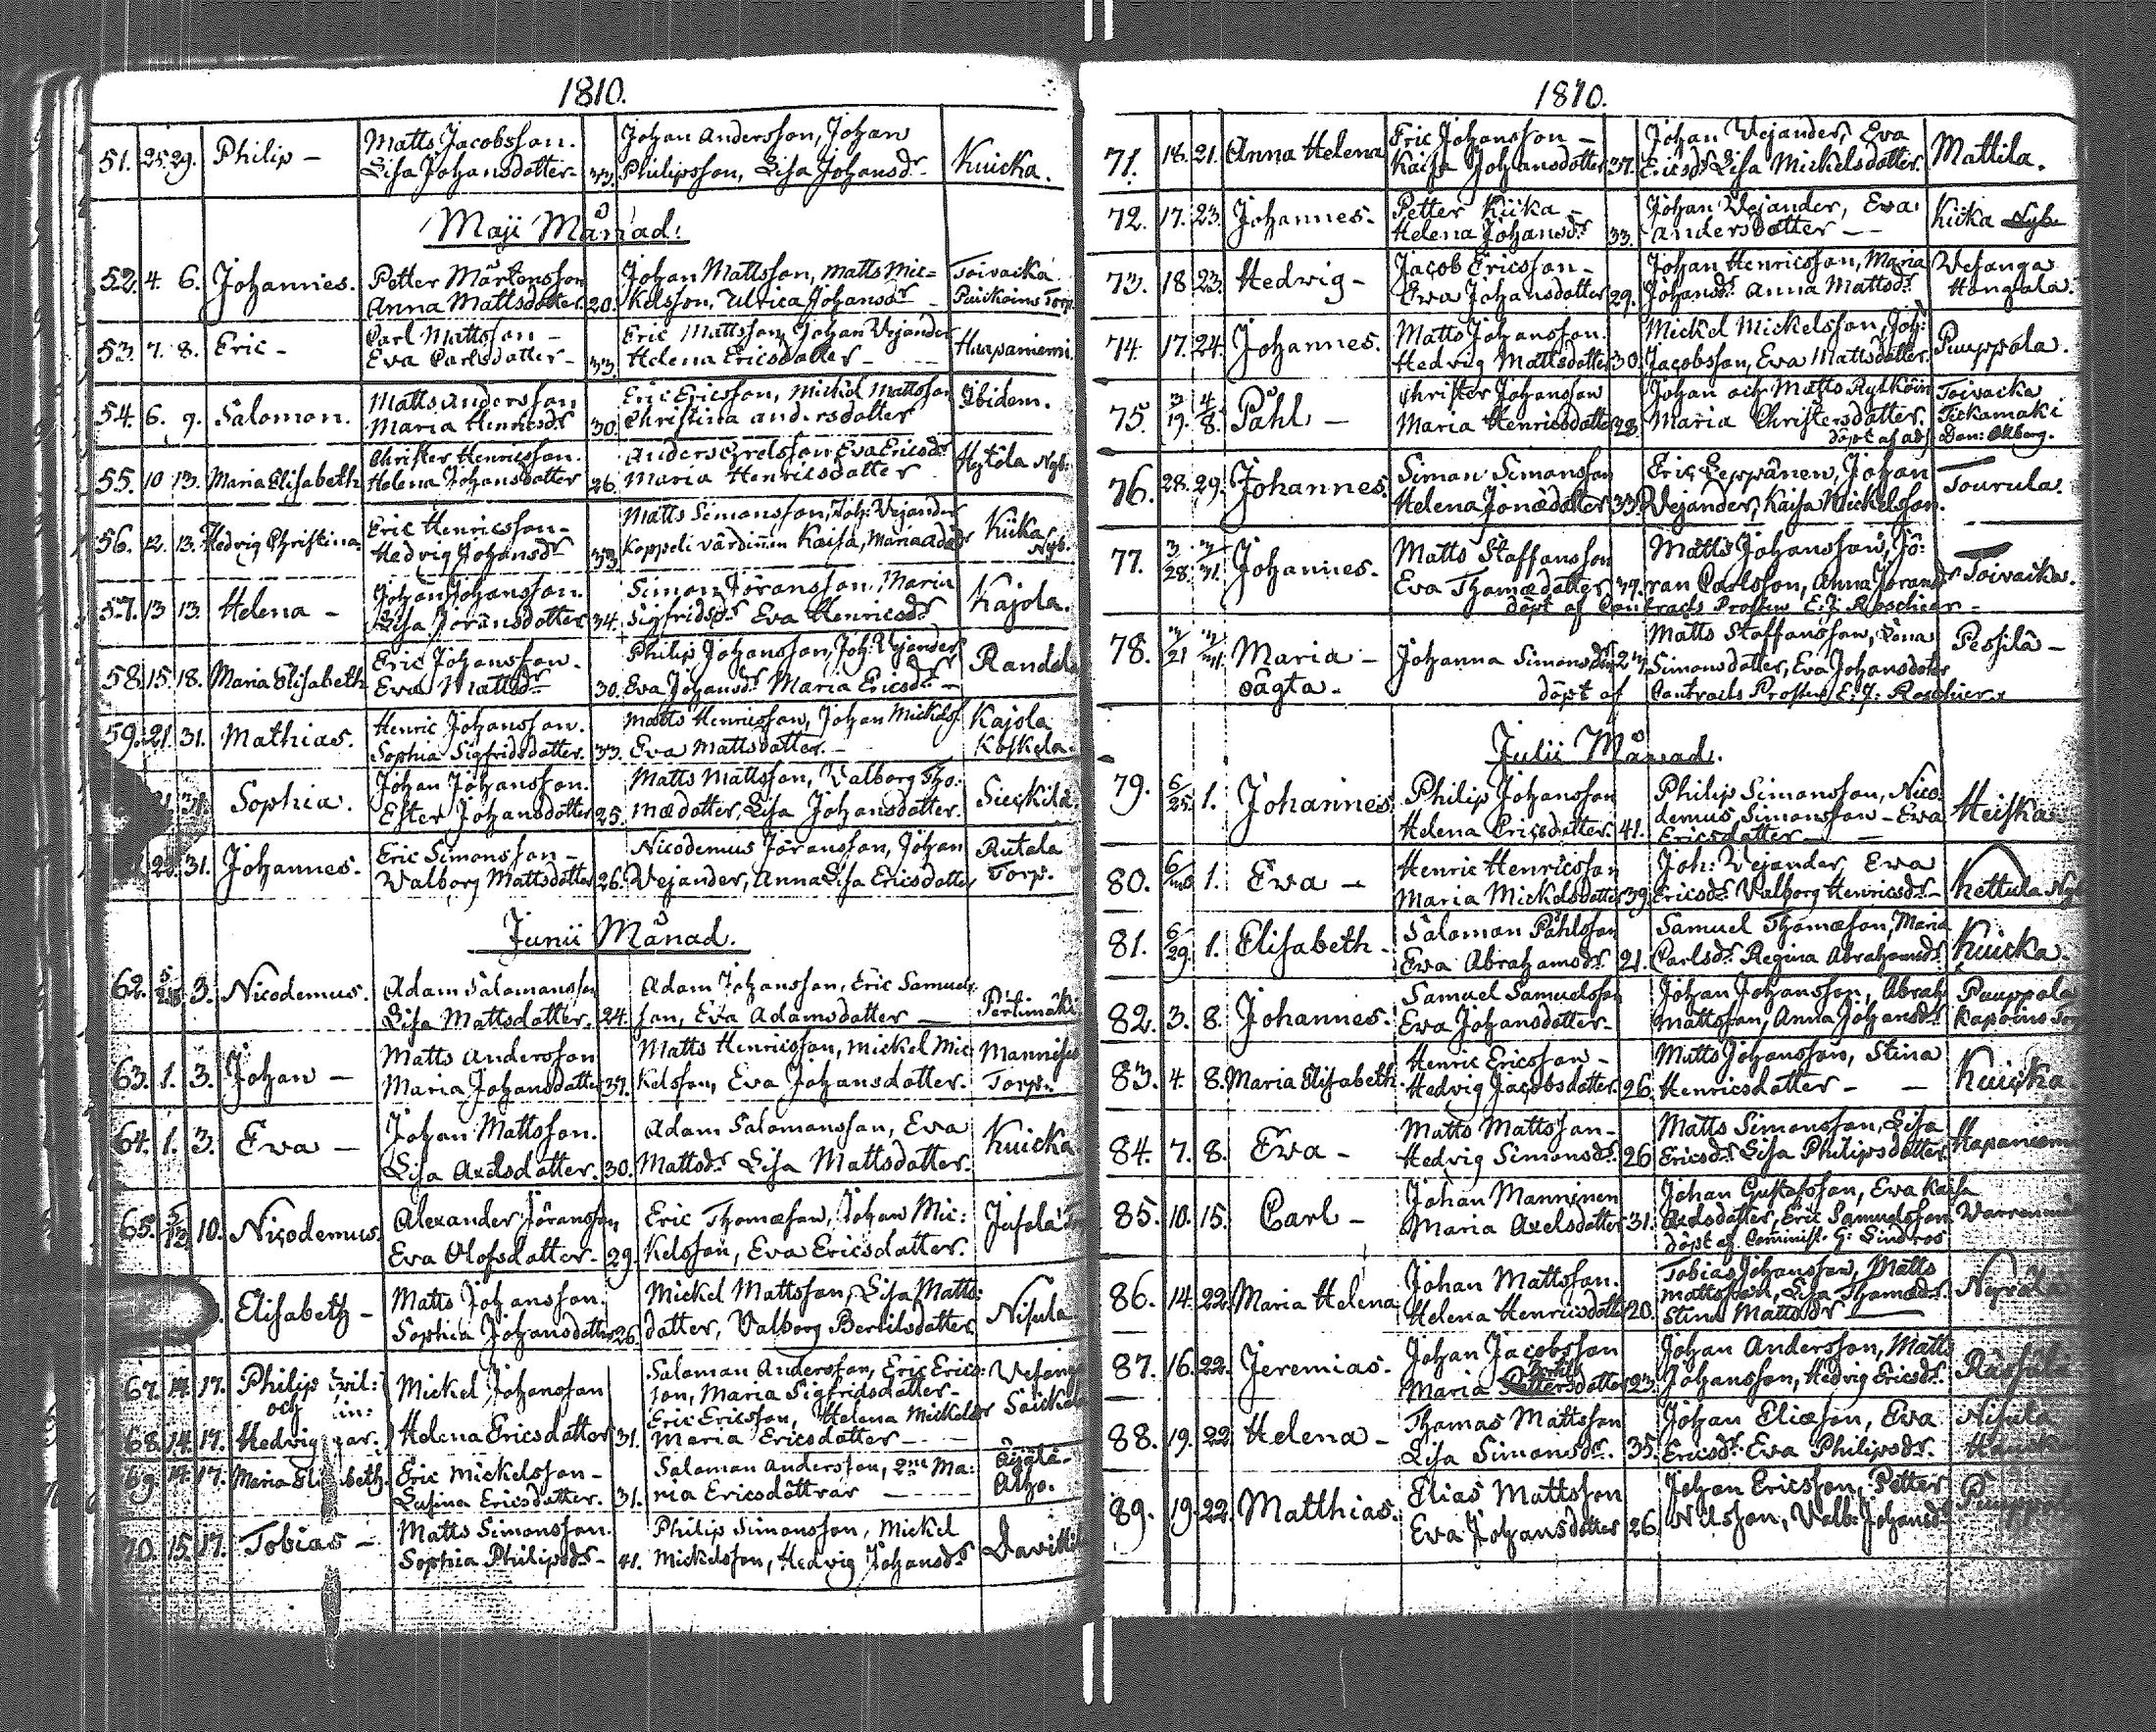 1810.
51. 25. 29. Philip - Matts Jacobsson. Johan Andersson, Johan
Lisa Johansdotter - 33. Philipsson, Lisa Johansdr Kuicka.
Maji Månad.
52. 4. 6. Johannes. Petter Mårtensson Johan Mattsson, Matts Mic= Toivacka
Anna Mattsdotter. 20. kelsson, Ulrica Johansdr - Torp.
53. 7. 8. Eric - Carl Mattsson - Eric Mattsson, Johan Vejander
Eva Carlsdotter - 33. Helena Ericsdotter - Haapaniemi.
54. 6. 9. Salomon. Matts Andersson Eric Ericsson, Mickel Mattsson Ibidem.
Maria Henricsdr 30. Christina Andersdotter
55. 10 13. Maria Elisabeth Christer Henricsson. Anders Grelsson Eva Ericsdr Hytölä Nyb:
Helena Johansdotter 26. Maria Henricsdotter
56. 12. 13. Hedvig Christina Eric Henricsson - Matts Simonsson, Joh: Vejander Kiika
Hedvig Johansdr 33. Koppeli värdinnen Kaisa, Maria Nyb.
57. 13 13. Helena - Johan Johansson. Simon Jöransson, Maria Kajola.
Lisa Jöransdotter 34. Sigfridsdr Eva Henricsdr
58. 15. 18. Maria Elisabeth Eric Johansson. Philip Johansson, Joh: Vejander
Eva Mattsdr 30. Eva Johansdr Maria Ericsdr -
59. 21. 31. Mathias. Henric Johansson. Matts Henricsson, Johan Mickelss Kajola
Sophia Sigfridsdotter. 33. Eva Mattsdotter. - Koskela.
Sophia. Johan Johansson. Matts Mattsson, Valborg Tho:
Ester Johansdotter 25. mædotter, Lisa Johansdotter. Sieckilä.
31. Johannes. Eric Simonsson - Nicodemus Jöransson, Johan Rutala
Valborg Mattsdotter 26. Vejander, Anna Lisa Ericsdotter Torp.
Junii Månad.
62. 3. Nicodemus. Adam Salomonsson Adam Johansson, Eric Samuels
Lisa Mattsdotter. 24. son, Eva Adamsdotter - Pertimäki
63. 1. 3. Johan - Matts Andersson Matts Henricsson, Mickel Mic
Maria Johansdotter 37. kelsson, Eva Johansdotter. Torp.
64. 1. 3. Eva - Johan Mattsson. Adam Salomonsson, Eva Kuicka
Lisa Axelsdotter. 30. Mattsdr Lisa Mattsdotter.
65. 5/13. 10. Nicodemus. Alexander Jöransson Eric Thomæson, Johan Mic:
Eva Olofsdotter - 29. kelsson, Eva Ericsdotter. Jusola
Elisabeth - Matts Johansson. Mickel Mattsson, Lisa Matts: Nisula
Sophia Johansdotter 26. dotter, Valborg Bertilsdotter
67. 14. 17. Philip Mickel Johansson Salomon Andersson, Eric Erics:
och son, Maria Sigfridsdotter -
68. 14. 17. Hedvig Helena Ericsdotter 31. Eric Ericsson, Helena Mickelsdr
Maria Ericsdotter -
69. 14. 17. Maria Elisabeth. Eric Mickelsson - Salomon Andersson, 2ne Ma:
Lusina Ericsdotter. 31. ria Ericsdöttrar - Aho.
70. 15. 17. Tobias - Matts Simonsson. Philip Simonsson, Mickel
Sophia Philipsdr - 41. Mickelsson, Hedvig Johansdr
1810.
71. 18. 21. Anna Helena Eric Johansson - Johan Vejander, Eva Mattila.
Kaisa Johansdotter 37. Ericsdr Lisa Mickelsdotter.
72. 17. 23. Johannes - Petter Kiika - Johan Vejander, Eva Kiika
Helena Johansdr 33. Andersdotter -
73. 18 23. Hedvig - Jacob Ericsson - Johan Henricsson, Maria Vesanga
Eva Johansdotter 29. Johansdr Anna Mattsdr Hongala.
74. 17. 24. Johannes. Matts Johansson. Mickel Mickelsson, Joh: Puuppola.
Hedvig Mattsdotter 30. Jacobsson, Eva Mattsdotter.
75. 3/19. 4/8. Påhl - Christer Johansson Johan och Matts Rytköin Toivacka
Maria Henricsdotter 28. Maria Christersdotter.
döpt af adj: Dom:
76. 28. 29. Johannes. Simon Simonsson Eric Leppänen, Johan Tourula.
Helena Jonædotter 33. Vejander, Kaisa Mickelsson.
77. 3/28. 3/31. Johannes. Matts Staffansson Matts Johansson, Jö:
Eva Thomædotter 39. ran Carlsson, Anna Jöransdr Toivacka.
döpt af Contracts Prosten E: J. Roschier -
78. Maria - Johanna Simonsdr Matts Staffansson, Lena Pessilä -
oägta. Simonsdotter, Eva Johansdotter
döpt af Contracts Prosten E: J: Roschier
Julii Månad.
79. 6/25. 1. Johannes Philip Johansson Philip Simonsson, Nico:
demus Simonsson - Eva Heiska
Helena Ericsdotter. 41. Ericsdotter -
80. 1. Eva - Henric Henricsson Joh: Vejander, Eva
Maria Mickelsdotter 39. Ericsdr Valborg Henricsdr - Kettula
81. 6/29. 1. Elisabeth - Salomon Påhlsson Samuel Thomæson, Maria
Eva Abrahamsdr 21. Carlsdr Regina Abrahamsdr Kuicka.
82. 3. 8. Johannes. Samuel Samuelsson Johan Johansson, Abrah Puuppola
Eva Johansdotter - Mattsson, Anna Johansdr
83. 4. 8. Maria Elisabeth. Henric Ericsson - Matts Johansson, Stina Kuicka
Hedvig Jacobsdotter. 26. Henricsdotter -
84. 7. 8. Eva - Matts Mattsson - Matts Simonsson, Lisa
Hedvig Simonsdr. 26. Ericsdr Lisa Philipsdotter
85. 10. 15. Carl - Johan Manninen Johan Gustafsson, Eva Kaisa
Maria Axelsdotter 31. Axelsdotter, Eric Samuelsson
döpt af Commist. G: Sindros
86. 14. 22. Maria Helena Johan Mattsson. Tobias Johansson, Matts
Mattsson, Lisa Thomædr.
Helena Henricsdotter 20. Stina Mattsdr
87. 16. 22. Jeremias. Johan Jacobsson Johan Andersson, Matts
Maria 23. Johansson, Hedvig Ericsdr.
88. 19. 22. Helena - Thomas Mattsson Johan Eliæson, Eva Nisula
Lisa Simonsdr. 35. Ericsdr Eva Philipsdr.
89. 19. 22. Matthias. Elias Mattsson Johan Ericsson, Petter
Eva Johansdotter 26. Nilsson, Valb: Johansdr